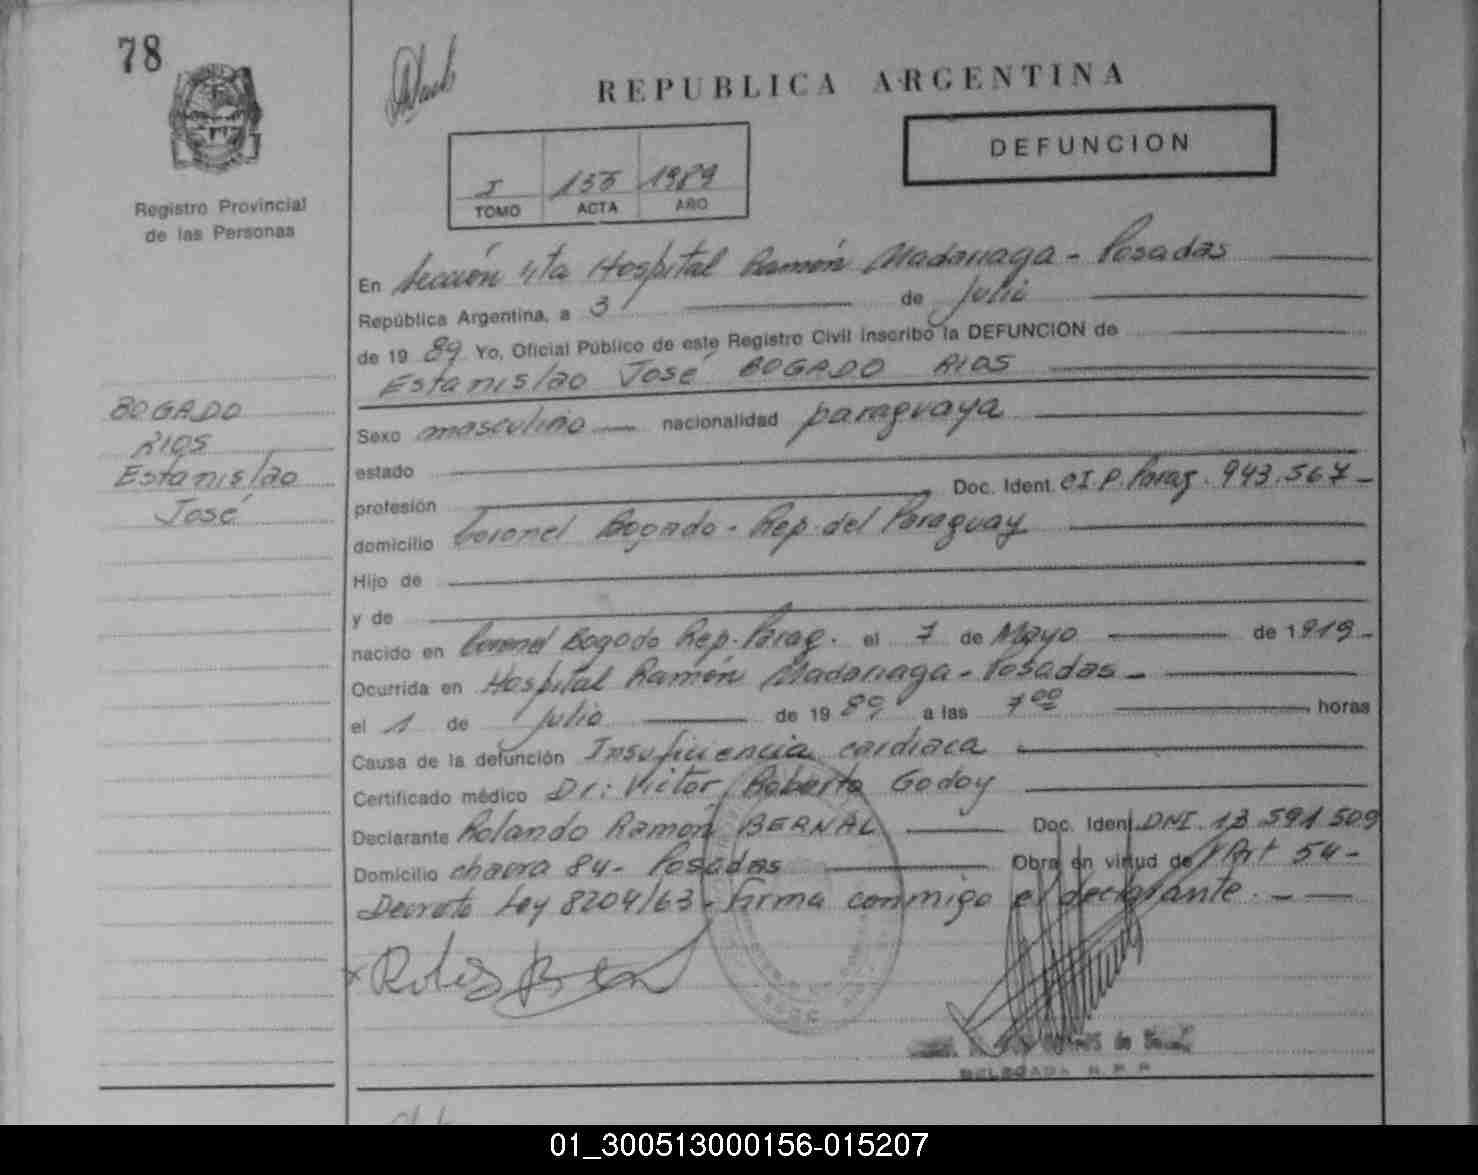 78
REPUBLICA ARGENTINA
DEFUNCION
I 155 1989
TOMO ACTA AÑO
Registro Provincial
de las Personas
BOGADO
RIOS
Estanislao
José
En Sección 4ta Hospital Ramón Madariaga - Posadas
República Argentina, a 3 de Julio
de 1989 Yo, Oficial Público de este Registro Civil inscribo la DEFUNCION de
Estanislao José BOGADO RIOS
Sexo masculino nacionalidad paraguaya
estado
profesión Doc. Ident. CI.P. Parag. 943.567-
domicilio Coronel Bogado - Rep. del Paraguay
Hijo de
y de
nacido en Coronel Bogado Rep. Parag. el 7 de Mayo de 1919-
Ocurrida en Hospital Ramón Madariaga - Posadas -
el 1 de Julio de 1989 a las 7 00 horas
Causa de la defunción Insuficiencia cardiaca
Certificado médico Dr: Victor Roberto Godoy
Declarante Rolando Ramon BERNAL Doc. Ident. DNI. 13.591.509
Domicilio chacra 84 - Posadas Obra en virtud de Art 54-
Decreto Ley 8204/63 - firma conmigo el declarante. -
DELEGADA R.P.P.
01_300513000156-015207